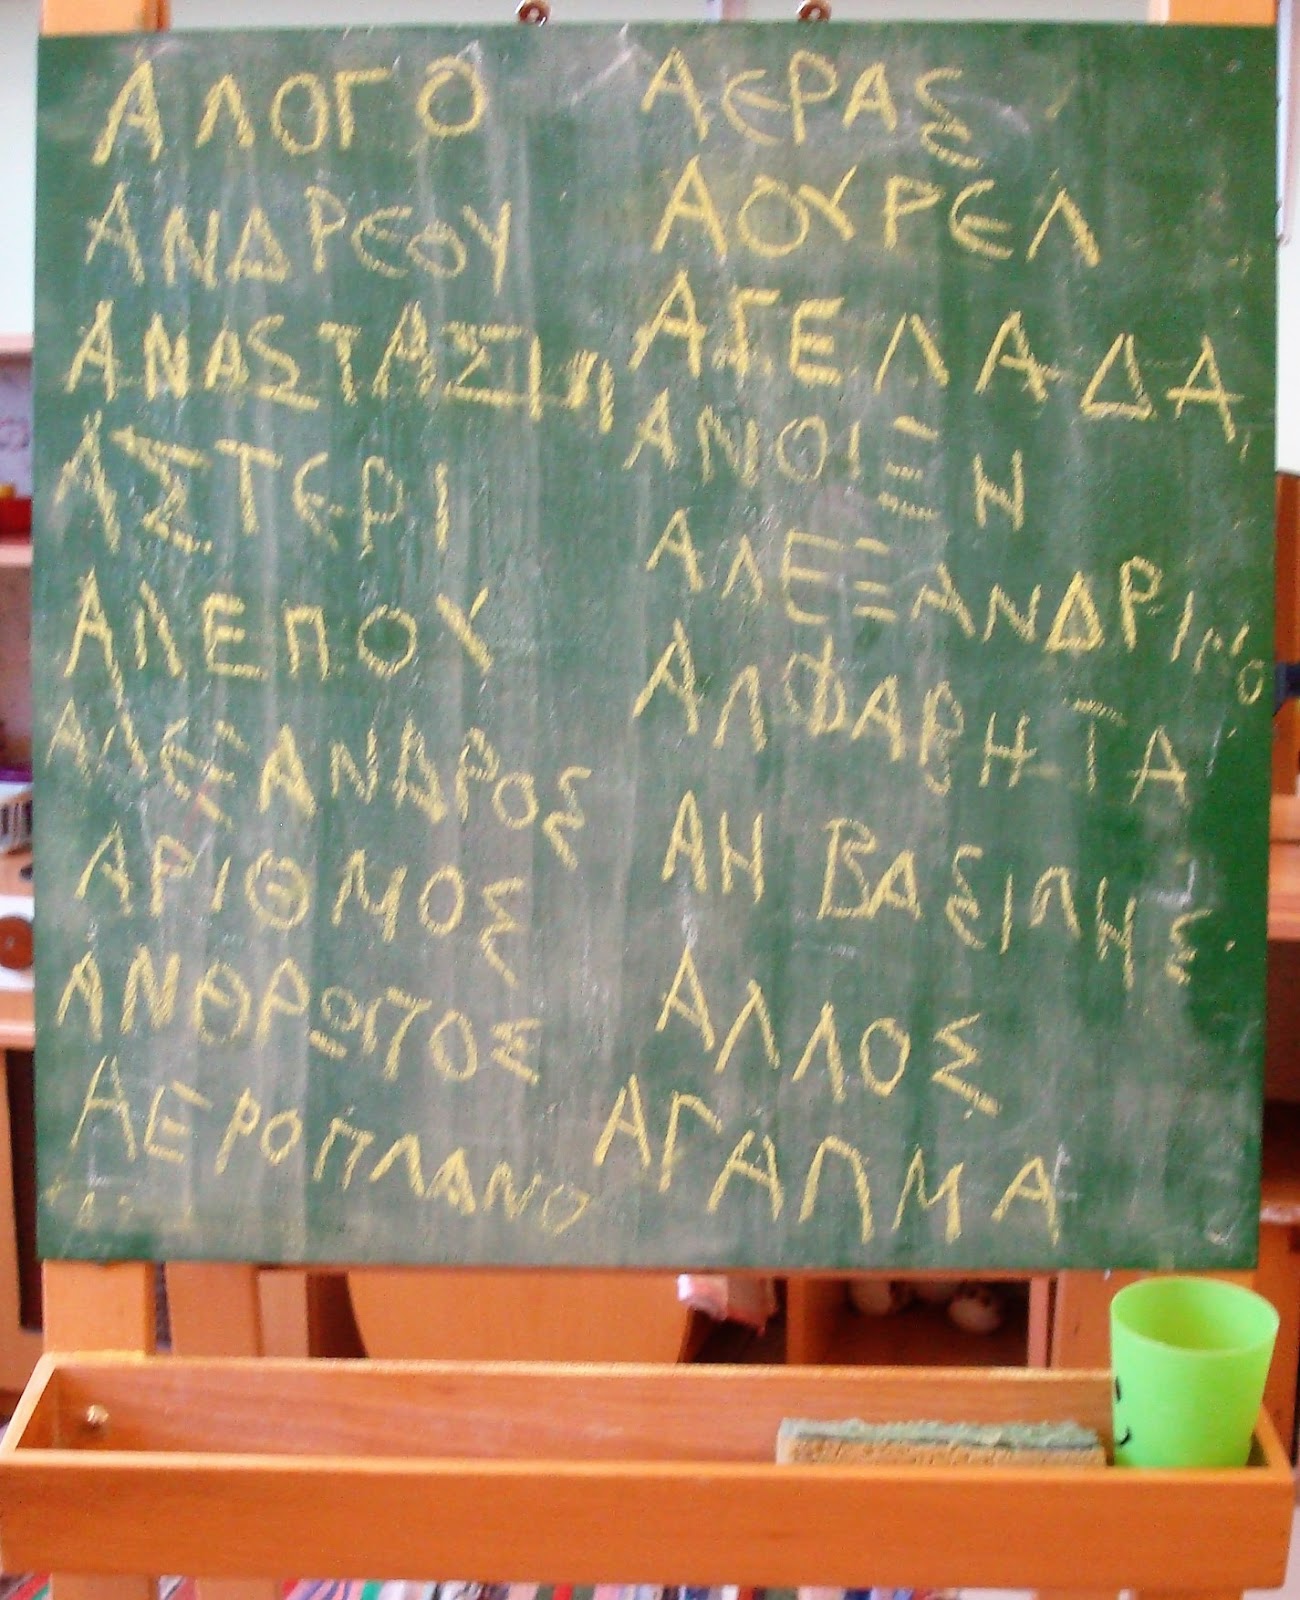 ΑΛΟΓΟ
ΑΝΔΡΕΟΥ
ΑΝΑΣΤΑΣΙΑ
ΑΣΤΕΡΙ
ΑΛΕΠΟΥ
ΑΛΕΞΑΝΔΡΟΣ
ΑΡΙΘΜΟΣ
ΑΝΘΡΩΠΟΣ
ΑΕΡΟΠΛΑΝΟ
ΑΕΡΑΣ
ΑΟΥΡΕΛ
ΑΓΕΛΑΔΑ
ΑΝΟΙΞΗ
ΑΛΕΞΑΝΔΡΙΝΟ
ΑΛΦΑΒΗΤΑ
ΑΗ ΒΑΣΙΛΗΣ
ΑΛΛΟΣ
ΑΓΑΛΜΑ